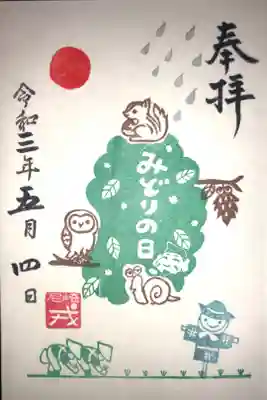 奉拝
みどりの日
令和三年五月四日
尼崎
戎